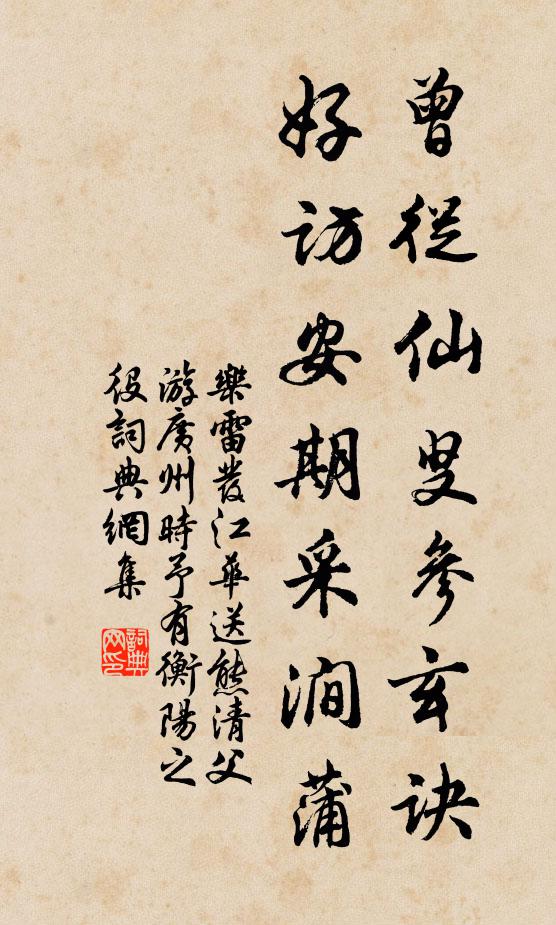 曾從仙叟參玄訣
好訪安期采澗蒲
樂雷發江華送熊清父
游廣州時予有衡陽之
役詞典網集
詞典網印